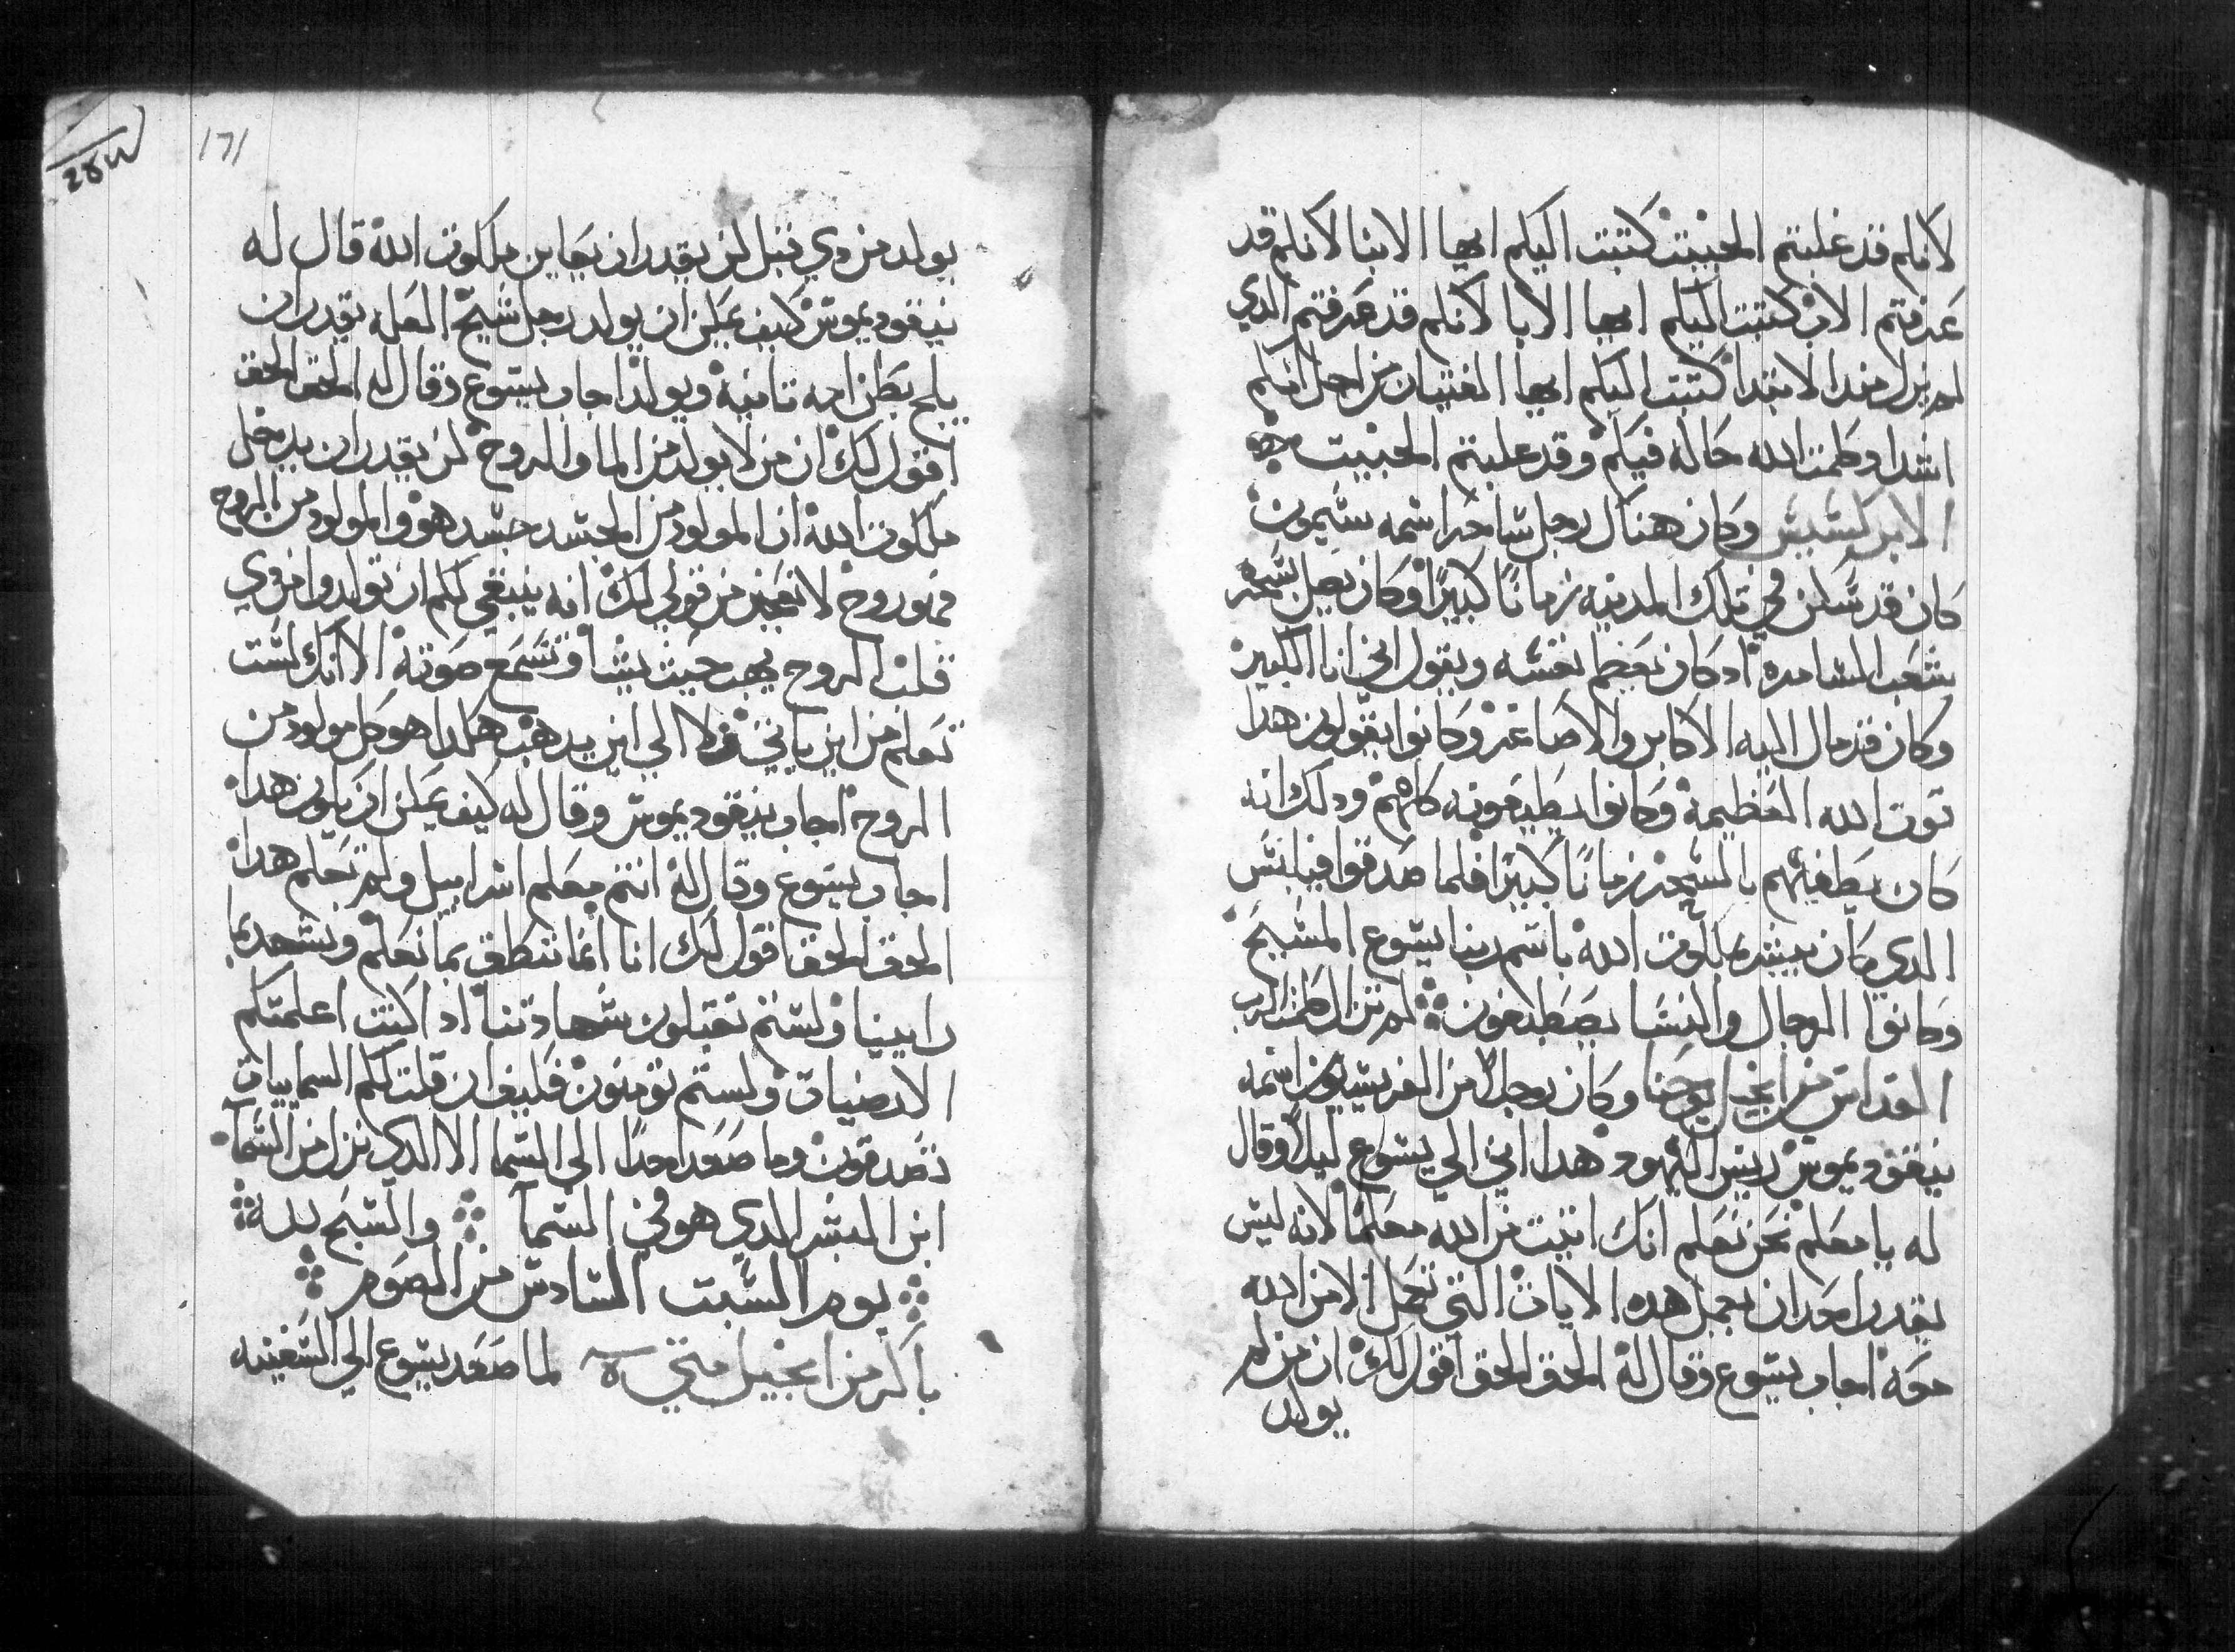 لانكم قد غلبتم الخبيث كتبت اليكم ايها الابنا لانكم قد
عرفتم الاب كتبت اليكم ايها الابا لانكم قد عرفتم الدي
لم يزل مند الابتدا كتبت اليكم ايها الفتيان من اجل انكم
اشدا وكلمت الله حاله فيكم وقد غلبتم الخبيث
الابركسيس وكان هناك رجل ساحر اسمه سيمون
كان قد سكن في تلك المدينه زمانا كبيرا وكان يضل بسحره
شعب السامره اد كان يعظم نفسه ويقول اني انا الكبير
وكان قد مال اليه الاكابر والاصاغر وكانوا يقولون هدا
قوت الله العظيمة وكانوا يطيعونه كلهم ودلك انه
كان يطغيهم بالسحر زمانا كبيرا فلما صدقوا فيلبس
الدي كان يبشر بملكوت الله باسم ربنا يسوع المسيح
وكانوا الرجال والنسا يصطبغون لم تزل كلمت الرب
القداس من انجيل يوحنا وكان رجلا من الفريسيين اسمه
نيقوديموس رييس اليهود هدا اتي الي يسوع ليلا وقال
له يا معلم نحن نعلم انك اتيت من الله معلما لانه ليس
يقدر احد ان يعمل هده الايات التي تعمل الا من الله
معه اجاب يسوع وقال له الحق الحق اقول لك ان من لم
يولد
171
يولد من دي قبل لن يقدر ان يعاين ملكوت الله قال له
نيقوديموس كيف يمكن ان يولد رجل شيخ العله يقدر ان
يلج بطن امه تانية ويولد اجاب يسوع وقال له الحق الحق
اقول لك ان من لا يولد من الما والروح لن يقدر ان يدخل
ملكوت الله ان المولود من الجسد جسد هو والمولود من الروح
فهو روح لا تعجبن من قولي لك انه ينبغي لكم ان تولدوا من دي
قبل الروح يهب حيت يشا وتسمع صوته الا انك لست
تعلم من اين ياتي ولا الي اين يدهب هكدا هو كل مولود من
الروح اجاب نيقوديموس وقال له كيف يمكن ان يكون هدا
اجاب يسوع وقال له انت معلم اسراييل ولم تعلم هدا
الحق الحق اقول لك انا انما ننطق بما نعلم ونشهد بما
راينا ولستم تقبلون شهادتنا اد اكنت اعلمتكم
الارضيات ولستم تومنون فكيف ان قلت لكم السماييات
تصدقون وما صعد احدا الي السما الا الدي نزل من السما
ابن البشر الدي هو في السما والسبح لله
يوم السبت السادس من الصوم
باكر من انجيل متي لما صعد يسوع الي السفينه